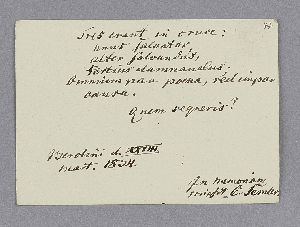 Tres erant in cruce:
unus salvator,
alter salvandus,
tertius damnandus.
Omnium par poena, sed impar
causa.
Quem sequeris?
Berolini d. XXVIII
mart. 1834.
In memoriam
scripsit C. Semler